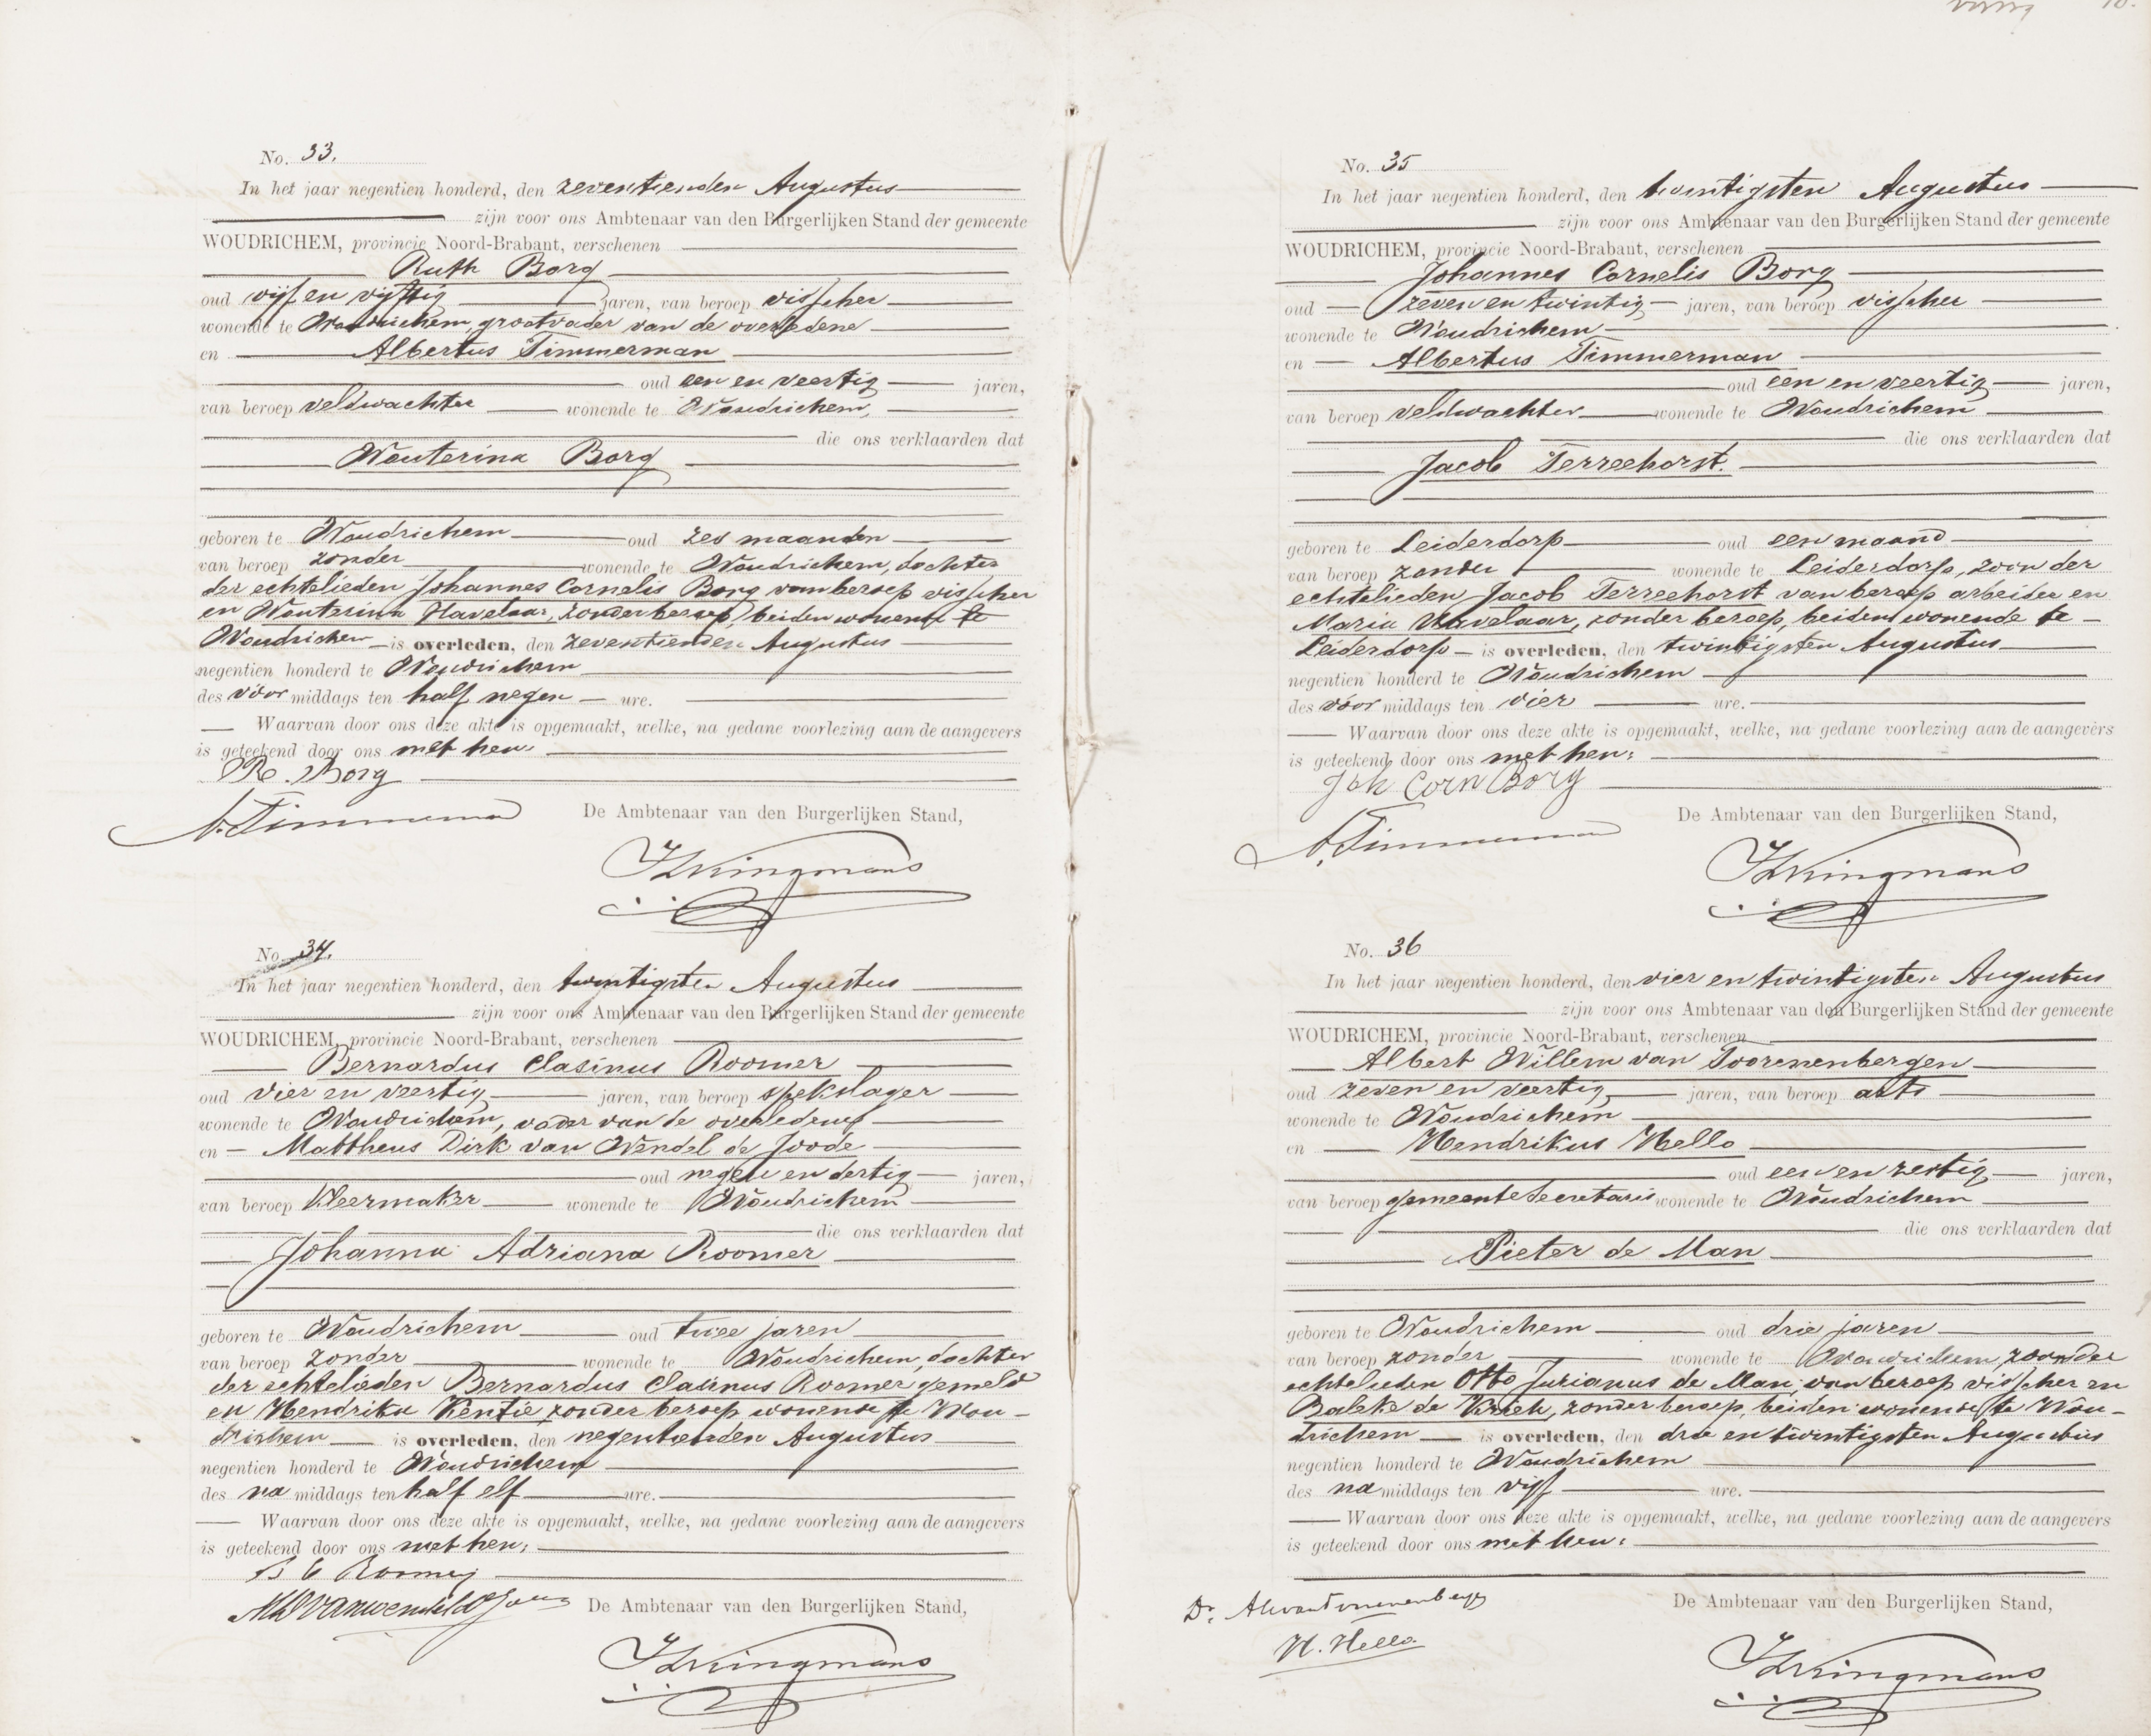 No. 33.
In het jaar negentien honderd, den zeventienden Augustus
zijn voor ons Ambtenaar van den Burgerlijken Stand der gemeente
WOUDRICHEM, provincie Noord-Brabant, verschenen
Ruth Borg
oud vijf en vijftig jaren, van beroep visscher
wonende te Woudrichem, grootvader van de overledene
en Albertus Timmerman
oud een en veertig jaren,
van beroep veldwachter wonende te Woudrichem,
die ons verklaarden dat
Wouterina Borg
geboren te Woudrichem oud zes maanden
van beroep zonder wonende te Woudrichem, dochter
der echtelieden Johannes Cornelis Borg van beroep visscher
en Wouterina Havelaar, zonder beroep, beiden wonende te
Woudrichem is overleden, den zeventienden Augustus
negentien honderd te Woudrichem
des voor middags ten half negen ure.
Waarvan door ons deze akte is opgemaakt, welke, na gedane voorlezing aan de aangevers
is geteekend door ons met hen.
R. Borg
A. Timmerman De Ambtenaar van den Burgerlijken Stand,
No. 34.
In het jaar negentien honderd, den twintigsten Augustus
zijn voor ons Ambtenaar van den Burgerlijken Stand der gemeente
WOUDRICHEM, provincie Noord-Brabant, verschenen
Bernardus Clasinus Roomer
oud vier en veertig jaren, van beroep spekslager
wonende te Woudrichem, vader van de overledene
en Mattheus Dirk van Wendel de Joode
oud negen en dertig jaren,
van beroep kleermaker wonende te Woudrichem
die ons verklaarden dat
Johanna Adriana Roomer
geboren te Woudrichem oud twee jaren
van beroep zonder wonende te Woudrichem, dochter
der echtelieden Bernardus Clasinus Roomer gemeld
en Hendrika Kentie zonder beroep wonende te Wou-
drichem is overleden, den negentienden Augustus
negentien honderd te Woudrichem
des na middags ten half elf ure.
Waarvan door ons deze akte is opgemaakt, welke, na gedane voorlezing aan de aangevers
is geteekend door ons met hen;
B C Roomer
De Ambtenaar van den Burgerlijken Stand,
No. 35
In het jaar negentien honderd, den twintigsten Augustus
zijn voor ons Ambtenaar van den Burgerlijken Stand der gemeente
WOUDRICHEM, provincie Noord-Brabant, verschenen
Johannes Cornelis Borg
oud zeven en twintig jaren, van beroep visscher
wonende te Woudrichem
en Albertus Timmerman
oud een en veertig jaren,
van beroep veldwachter wonende te Woudrichem
die ons verklaarden dat
Jacob Terreehorst.
geboren te Leiderdorp oud een maand
van beroep zonder wonende te Leiderdorp, zoon der
echtelieden Jacob Terreehorst van beroep arbeider en
Maria Havelaar, zonder beroep, beiden wonende te
Leiderdorp is overleden, den twintigsten Augustus
negentien honderd te Woudrichem
des voor middags ten vier ure.
Waarvan door ons deze akte is opgemaakt, welke, na gedane voorlezing aan de aangevers
is geteekend door ons met hen:
Joh Corn Borg
A. Timmerman De Ambtenaar van den Burgerlijken Stand,
No. 36
In het jaar negentien honderd, den vier en twintigsten Augustus
zijn voor ons Ambtenaar van den Burgerlijken Stand der gemeente
WOUDRICHEM, provincie Noord-Brabant, verschenen
Albert Willem van Toorenenbergen
oud zeven en veertig jaren, van beroep arts
wonende te Woudrichem
en Hendrikus Hello
oud een en zestig jaren,
van beroep gemeentesecretaris wonende te Woudrichem
die ons verklaarden dat
Pieter de Man
geboren te Woudrichem oud drie jaren
van beroep zonder wonende te Woudrichem, zoon der
echtelieden Otto Jurianus de Man, van beroep visscher en
de zonder beroep, beiden wonende te Wou-
drichem is overleden, den drie en twintigsten Augustus
negentien honderd te Woudrichem
des na middags ten vijf ure.
Waarvan door ons deze akte is opgemaakt, welke, na gedane voorlezing aan de aangevers
is geteekend door ons met hen:
De Ambtenaar van den Burgerlijken Stand,
H. Hello